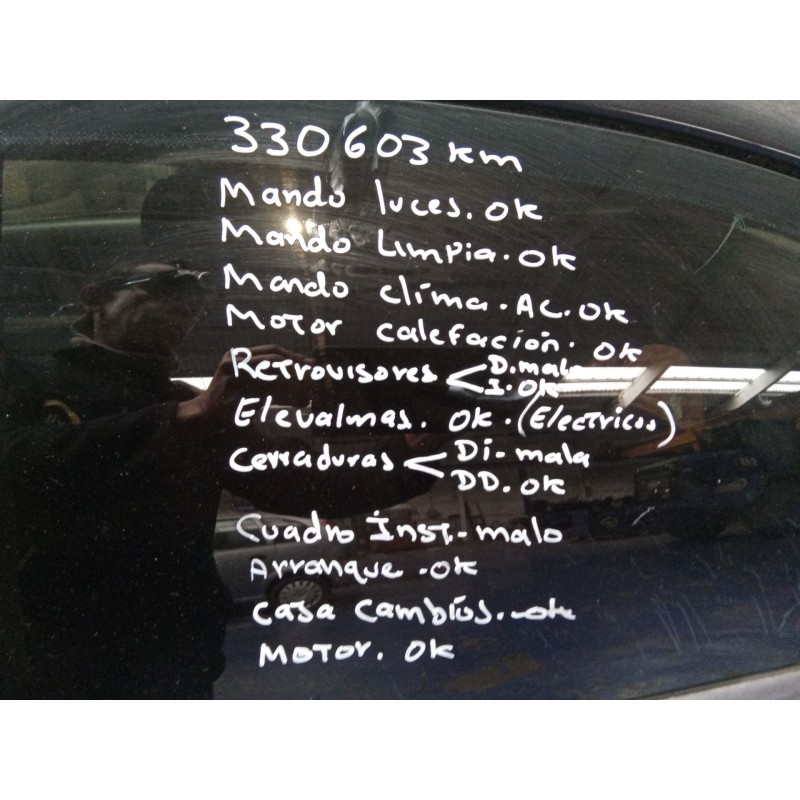 330603 km
Mando luces. ok
Mando Limpia. ok
Mando clima. AC. ok
Motor calefación. ok
Retrovisores < D. malo
I. ok
Elevalmas. ok. (Electricos)
Cerraduras < Di- mala
DD. ok
Cuadro Inst.- malo
Arranque. ok
casa cambios. ok
Motor. ok